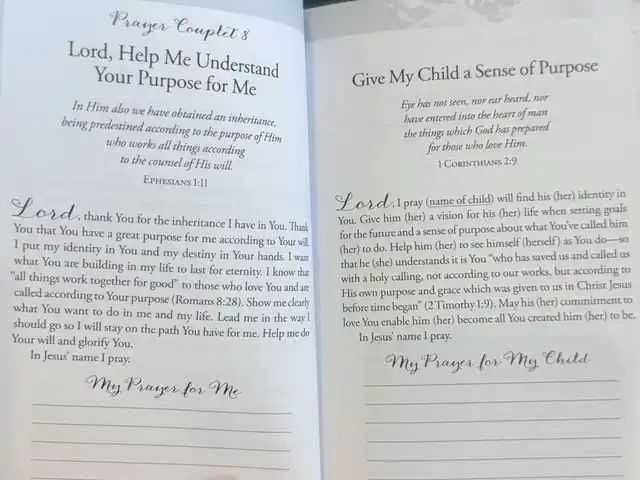 Prayer Couplet 8
Lord, Help Me Understand
Your Purpose for Me
In Him also we have obtained an inheritance,
being predestined according to the purpose of Him
who works all things according
to the counsel of His will.
EPHESIANS 1:11
Lord, thank You for the inheritance I have in You. Thank
You that You have a great purpose for me according to Your will.
I put my identity in You and my destiny in Your hands. I want
what You are building in my life to last for eternity. I know that
“all things work together for good” to those who love You and are
called according to Your purpose (Romans 8:28). Show me clearly
what You want to do in me and my life. Lead me in the way I
should go so I will stay on the path You have for me. Help me do
Your will and glorify You.
In Jesus’ name I pray.
My Prayer for Me
Give My Child a Sense of Purpose
Eye has not seen, nor ear heard, nor
have entered into the heart of man
the things which God has prepared
for those who love Him.
1 CORINTHIANS 2:9
Lord, I pray (name of child) will find his (her) identity in
You. Give him (her) a vision for his (her) life when setting goals
for the future and a sense of purpose about what You’ve called him
(her) to do. Help him (her) to see himself (herself) as You do—so
that he (she) understands it is You “who has saved us and called us
with a holy calling, not according to our works, but according to
His own purpose and grace which was given to us in Christ Jesus
before time began” (2 Timothy 1:9). May his (her) commitment to
love You enable him (her) become all You created him (her) to be.
In Jesus’ name I pray.
My Prayer for My Child